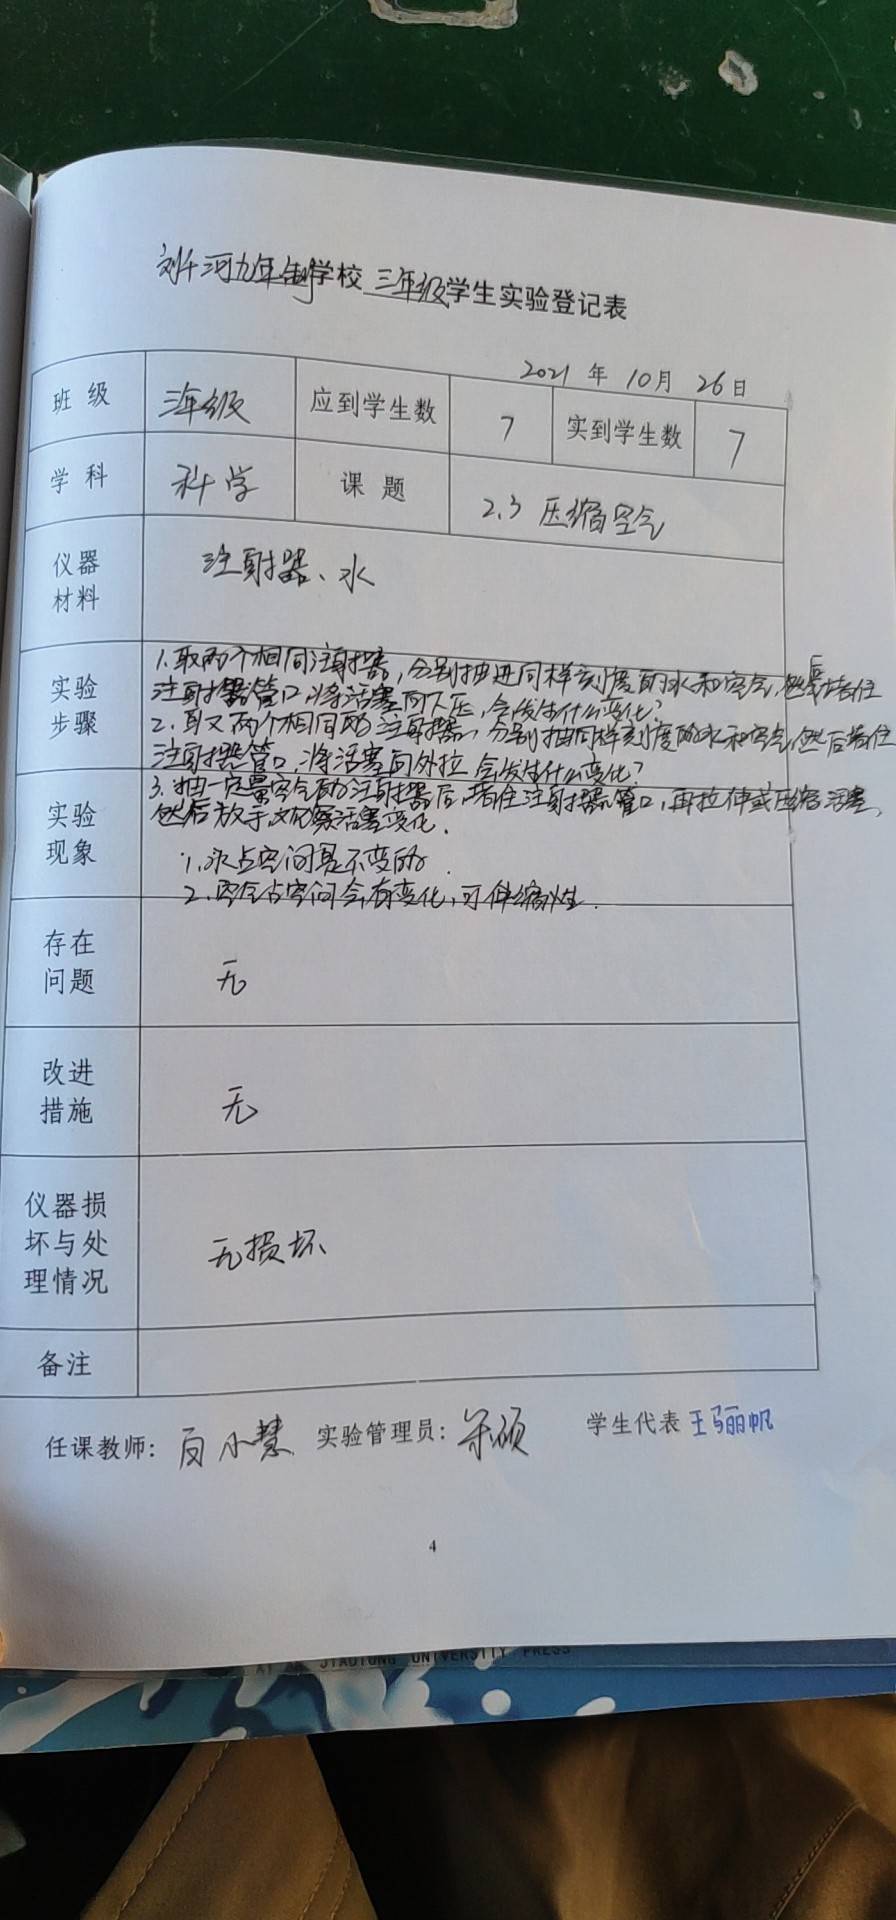 刘千河九年制学校 三年级学生实验登记表
2021 年 10月 26日
班 级 三年级 应到学生数 7 实到学生数 7
学 科 科学 课 题 2.3 压缩空气
仪器
材料
注射器、水
实验
步骤
1.取两个相同注射器,分别抽进同样刻度的水和空气,然后堵住
注射器管口,将活塞向下压,会发生什么变化?
2.取又两个相同的注射器,分别抽同样刻度的水和空气,然后堵住
注射器管口,将活塞向外拉,会发生什么变化?
3.抽一定量空气的注射器后,堵住注射器管口,再拉伸或压缩活塞,
然后放手,观察活塞变化.
实验
现象
1.水占空间是不变的.
2.空气占空间会有变化,可伸缩性.
存在
问题
无
改进
措施
无
仪器损
坏与处
理情况
无损坏
备注
任课教师: 小慧 实验管理员: 硕 学生代表 王骊帆
4
JIAOTONG UNIVERSITY PRESS